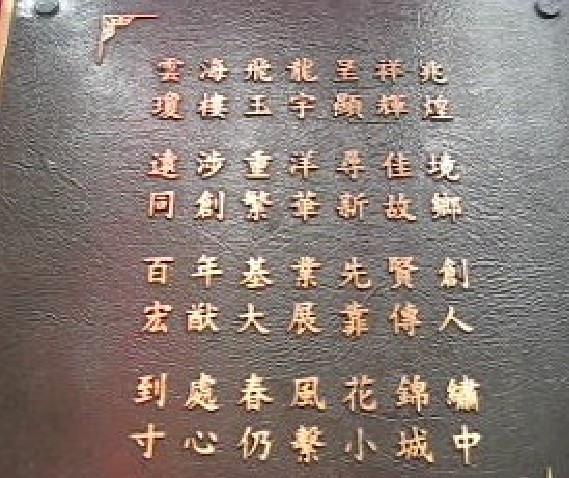 雲海飛龍呈祥兆
瓊樓玉宇顯輝煌
遠涉重洋尋佳境
同創繁華新故鄉
百年基業先賢創
宏猷大展靠傳人
到處春風花錦繡
寸心仍繫小城中